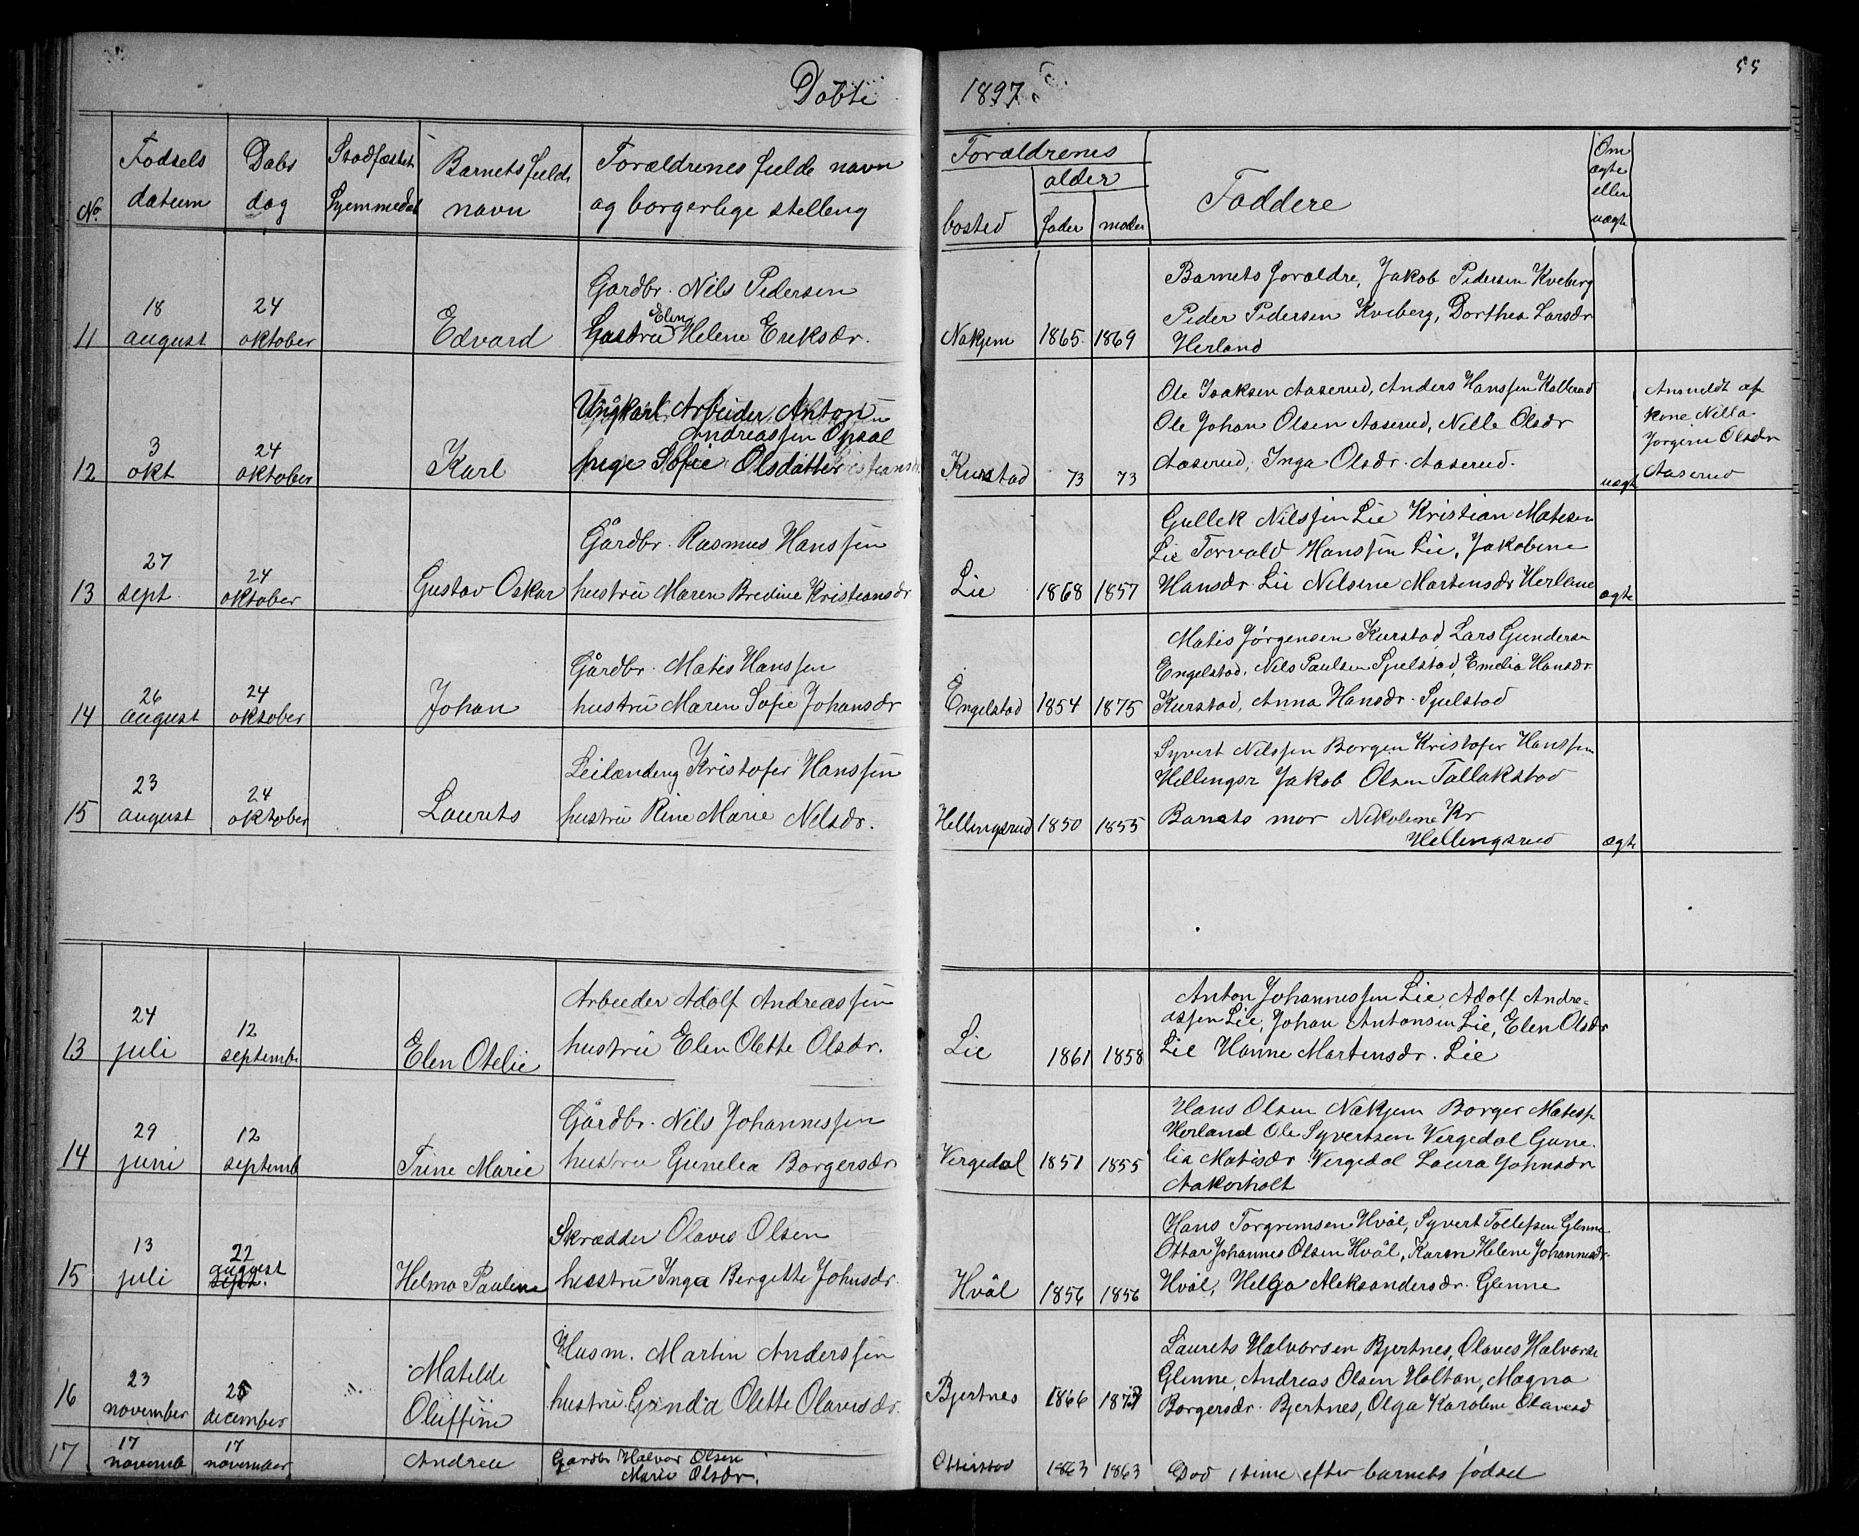 Døbte 1897.
55
No.
Fødsels datum
Dabs dag
Stadfæstet hjemmedåb
Barnets fulde navn
Forældrenes fulde navn og borgerlige stelleng
Forældrenes
bosted
alder
fader
moder
Faddere
Om ægte eller uægte
11
18 august
24 oktober
Edvard
Gårdbr. Nils Pedersen
hustru Elen Helene Eriksdr.
Nakjem
1865
1869
Barnets forældre, Jakob Pedersen Kveberg
Peder Pedersen Kveberg, Dorthea Larsdr
Herland
12
3 okt
24 oktober
Karl
Ungkarl Arbeider Anton
Andreassen Opsal
pige Sofie Olsdatter
Kurstad
73
73
Ole Isaksen Aaserud, Anders Hanssen Kollerud
Ole Johan Olsen Aaserud, Nille Olsdr
Aaserud, Inga Olsdr. Aaserud.
uægte
Anmeldt af
kone Nilla
Jørgine Olsdr
Aaserud
13
27 sept
24 oktober
Gustav Oskar
Gårdbr. Rasmus Hanssen
hustru Maren Bredine Kristiansdr
Lie
1868
1857
Gullek Nilssen Lie Kristian Matesen
Lie Torvald Hanssen Lie, Jakobine
Hansdr. Lie Nilsine Martensdr Herland
ægte
14
26 august
24 oktober
Johan
Gårdbr. Mates Hanssen
hustru Maren Sofie Johansdr
Engelstad
1854
1875
Matis Jørgensen Kurstad, Lars Gundersen
Engelstad, Nils Paulsen Sjulstad, Emelia Hansdr
Kurstad, Anna Hansdr. Sjulstad
15
23 august
24 oktober
Laurets
Leilændeng Kristofer Hanssen
hustru Rine Marie Nelsdr.
Hellingsrud
1850
1855
Syvert Nilssen Borgen Kristofer Hanssen
Hellingsr Jakob Olsen Tallakstad
Barnets mor Nikoline Kr
Hellingsrud
ægte
13
24 juli
12 septembe
Elen Otelie
Arbeider Adolf Andreassen
hustru Elen Olette Olsdr.
Lie
1861
1858
Anton Johannessen Lie, Adolf Andre-
assen Lie, Johan Antonsen Lie, Elen Olsdr
Lie Hanne Martensdr. Lie
14
29 juni
12 septemb
Trine Marie
Gårdbr. Nils Johannessen
hustru Gunelea Borgersdr
Vergedal
1851
1855
Hans Olsen Nakjem Borger Matess
Herland Ole Syvertsen Vergedal Gune-
lia Matisdr Vergedal Laura Johnsdr
Aakerholt
15
13 juli
22 august sept.
Helma Pauline
Skrædder Olaves Olsen
hustru Inga Bergette Johnsdr.
Hvål
1856
1856
Hans Torgremsen Hvål, Syvert Tollefsen Glenne
Ottar Johannes Olsen Hvål, Karen Helene Johannesdr
Hvål, Helga Aleksandersdr. Glenne
16
23 november
25 december
Matelde
Oluffine
Husm. Martin Anderssen
hustru Ginda Olette Olavesdr.
Bjertnes
1866
Laurets Halvorsen Bjertnes, Olaves Halvorse
Glenne, Andreas Olsen Holtan, Magna
Borgersdr. Bjertnes, Olga Karoline Olavesd
17
17 novembe
17 november
Andrea
Gårdbr Halvor Olsen
Marie Olsdr.
Otterstad
1863
1863
Død 1 time efter barnets fødsel